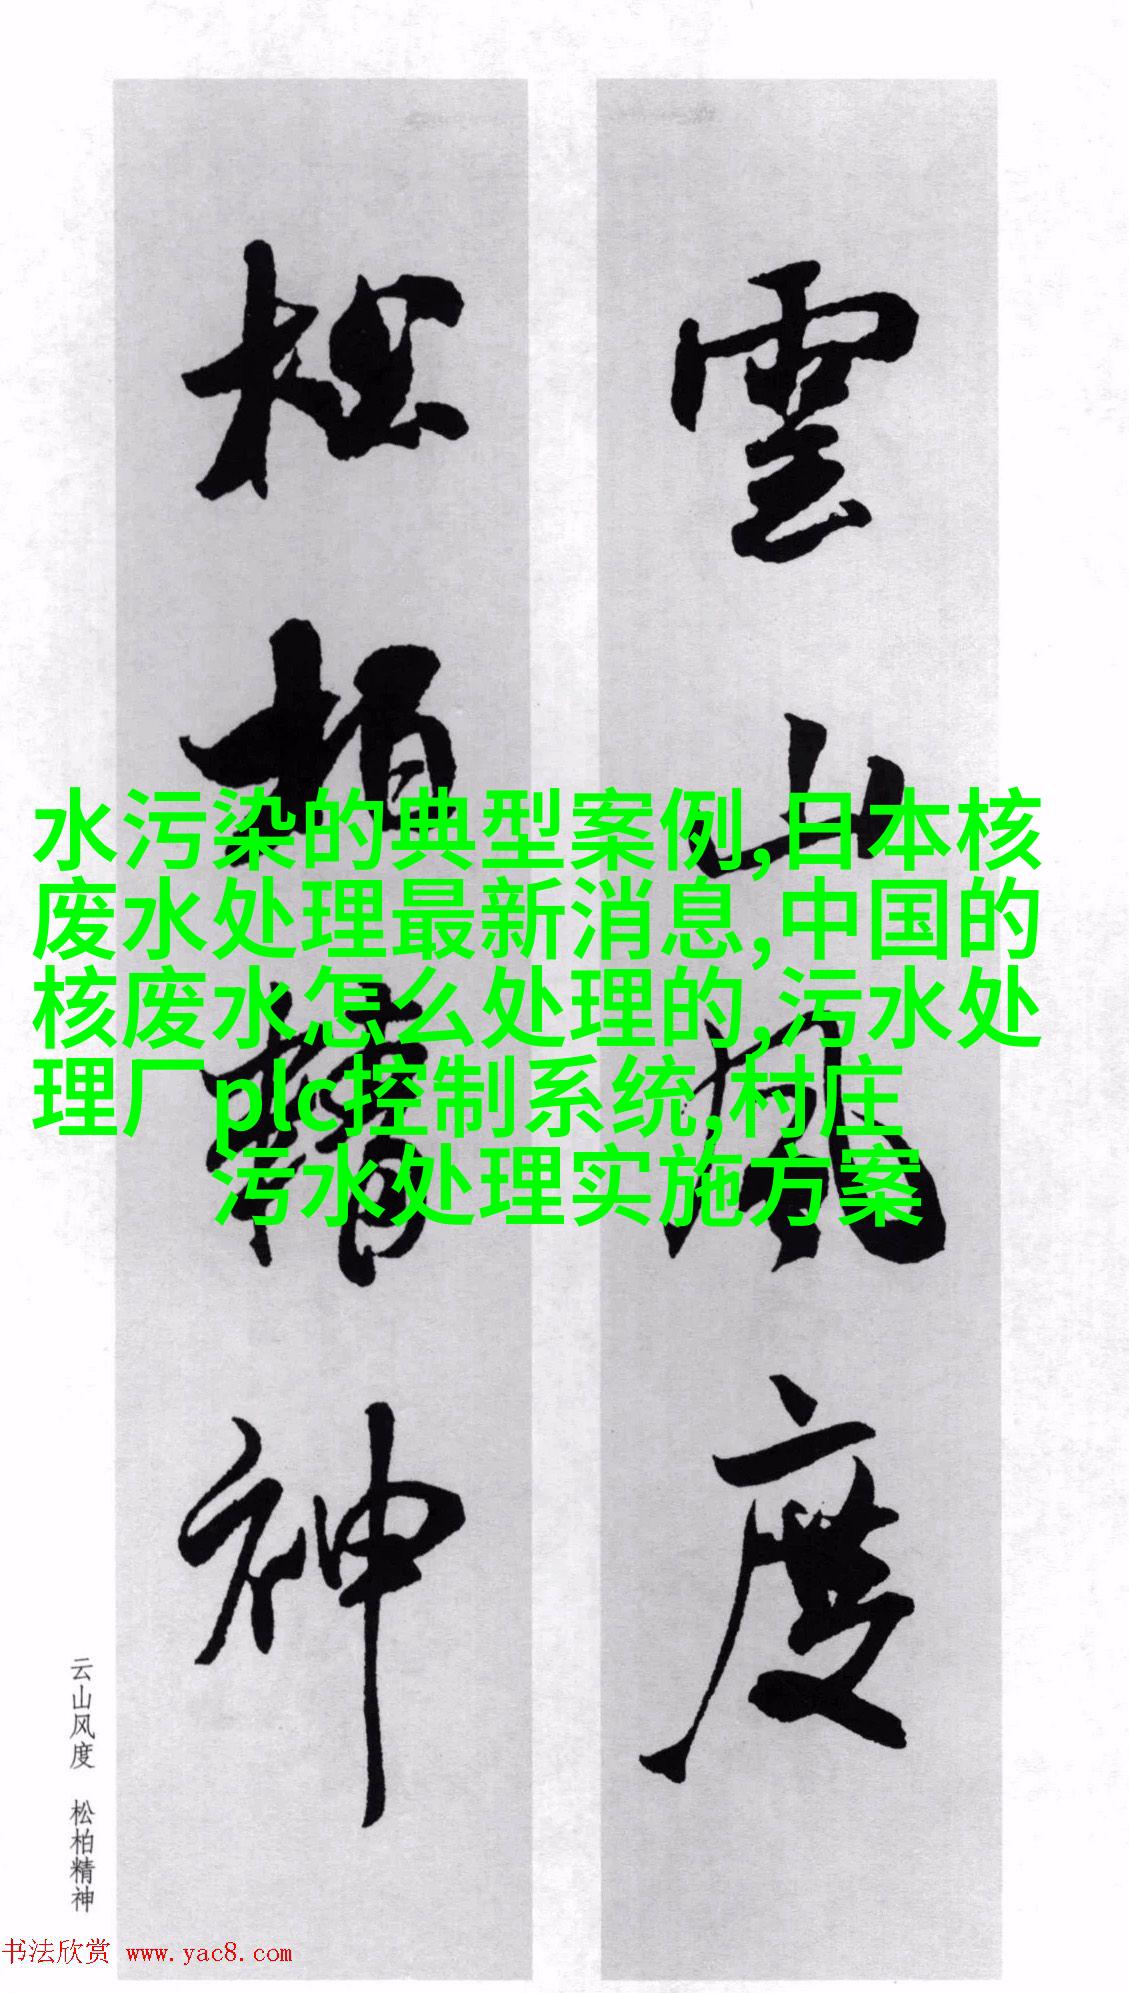 雲山風度
松柏精神
水污染的典型案例,日本核
废水处理最新消息,中国的
核废水怎么处理的,污水处
理厂plc控制系统,村庄
污水处理实施方案
云山风度 松柏精神
书法欣赏 www.yac8.com